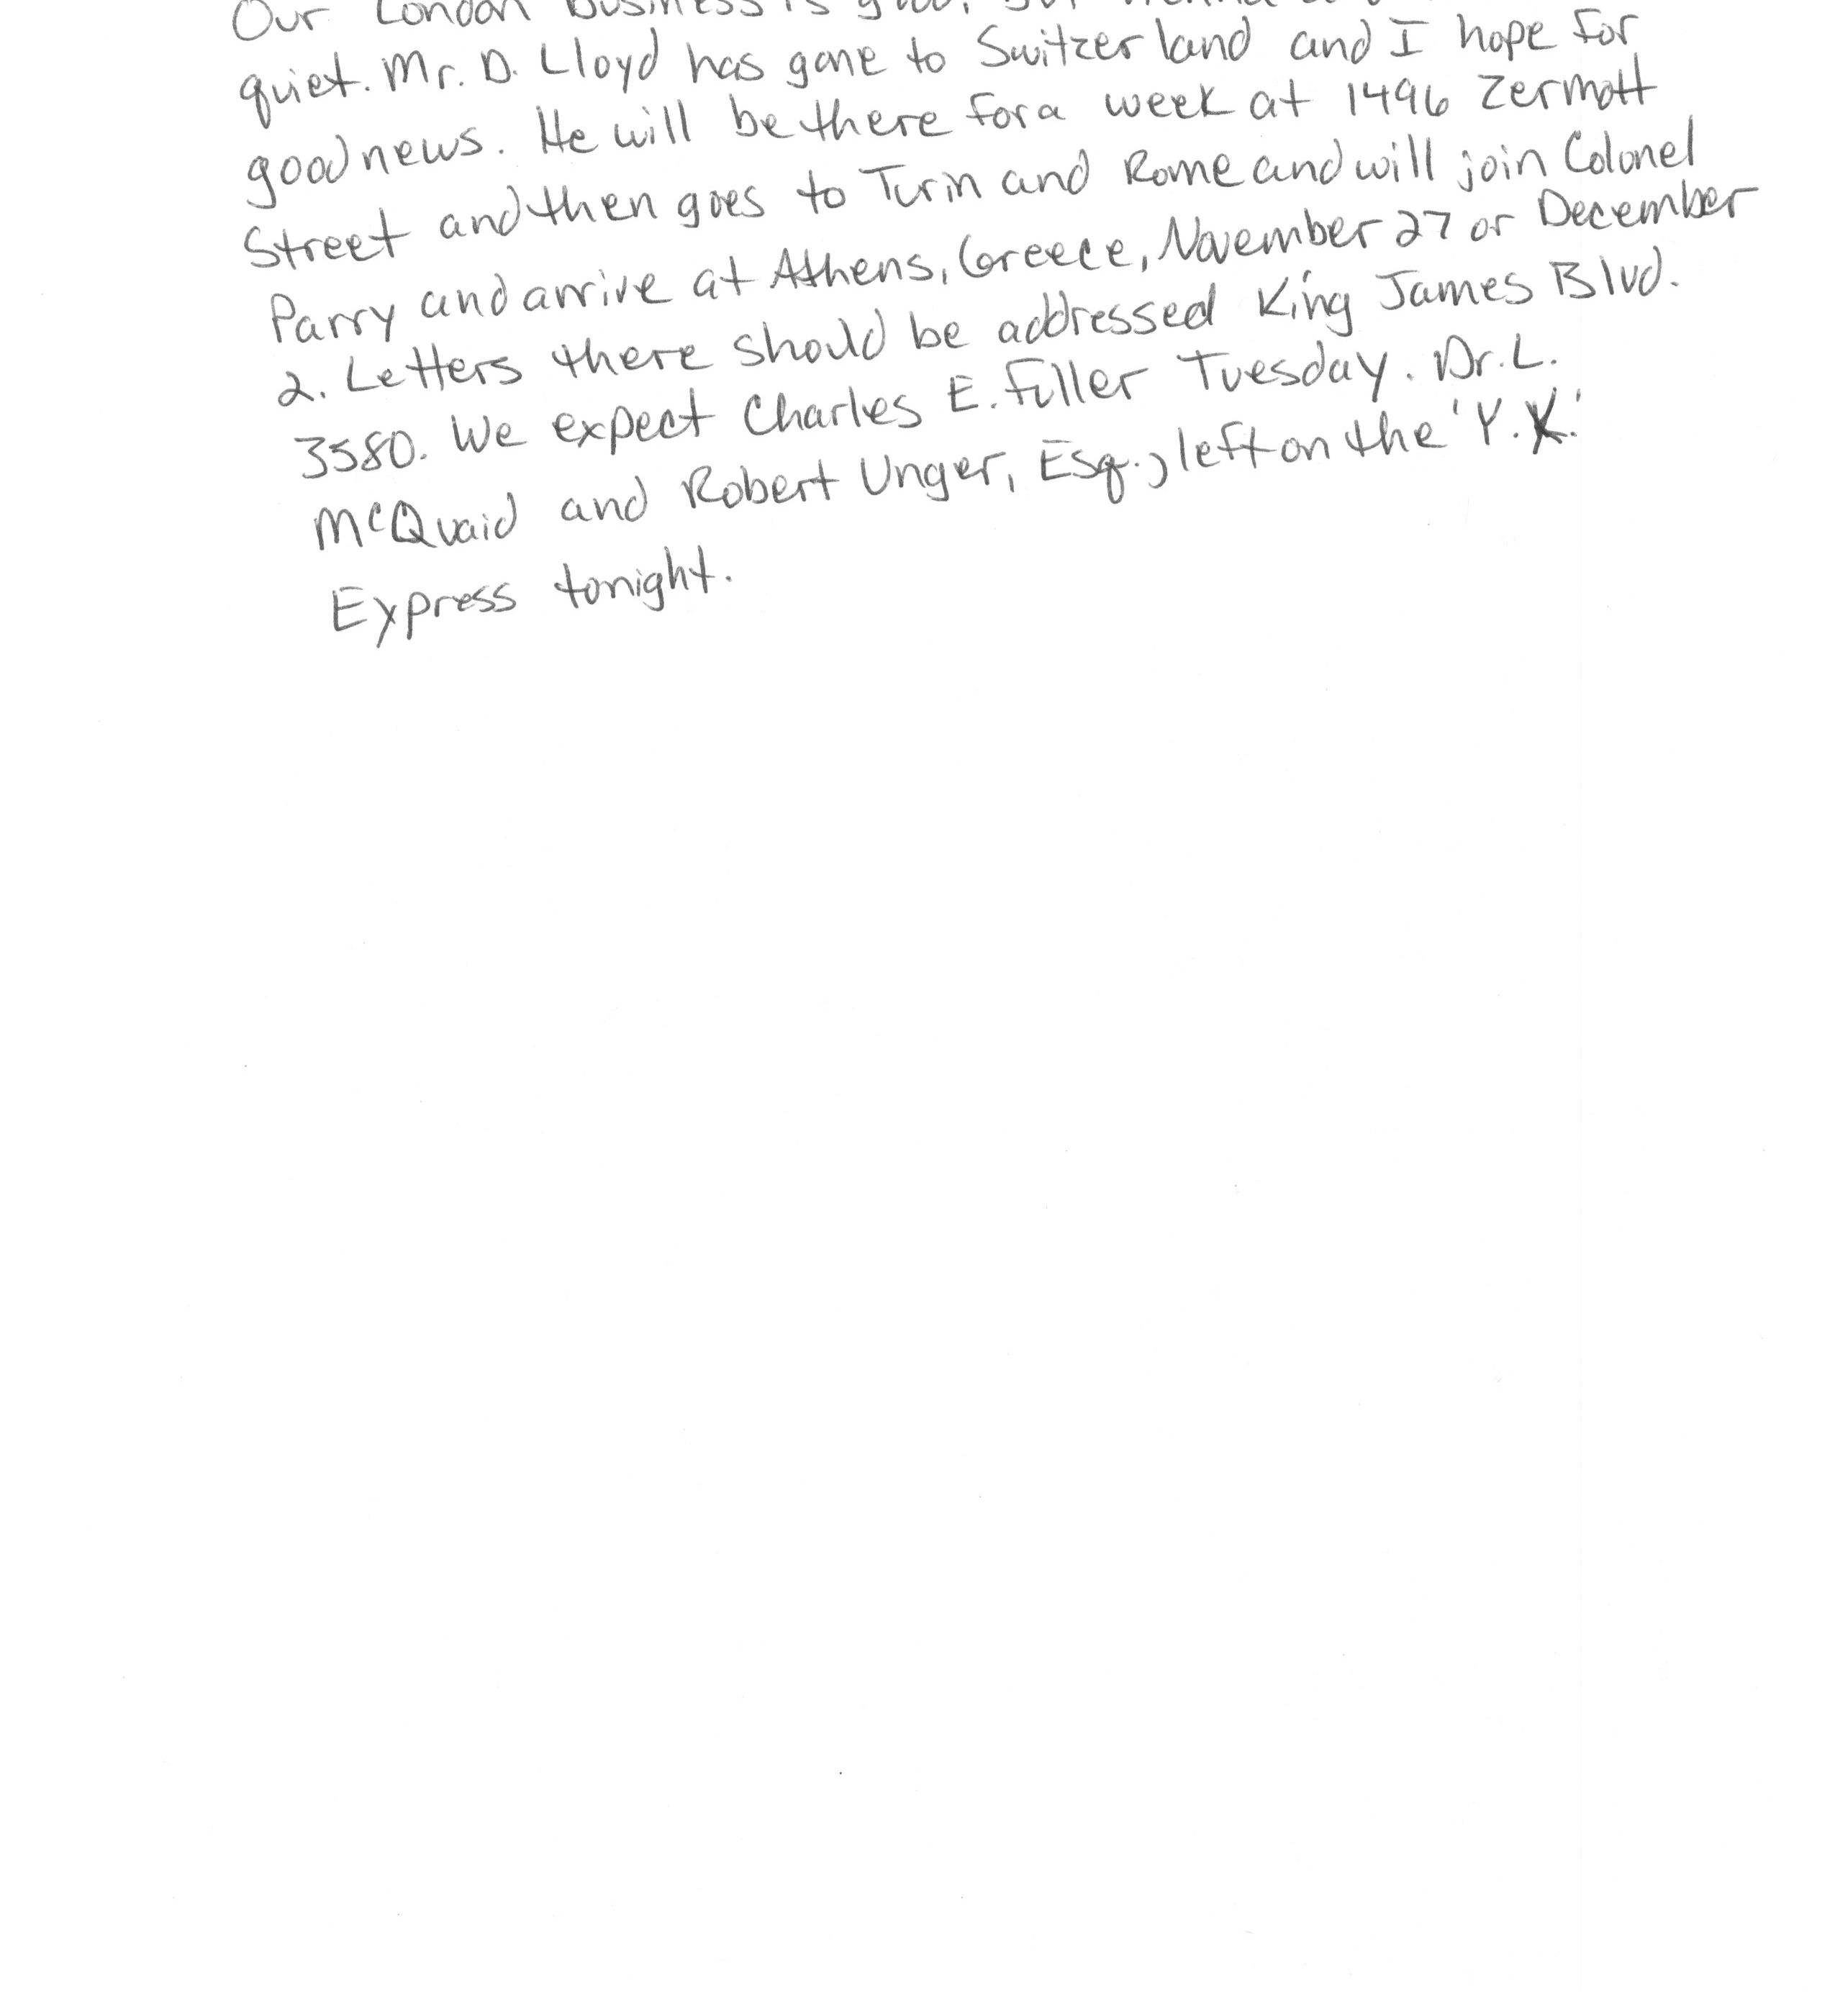 Our London business is good, but Vienna
quiet. Mr. D. Lloyd has gone to Switzerland and I hope for
good news. He will be there for a week at 1496 Zermott
Street and then goes to Turin and Rome and will join Colonel
Parry and arrive at Athens, Greece, November 27 or December
2. Letters there should be addressed King James Blvd.
3580. We expect Charles E. Fuller Tuesday. Dr. L.
McQuaid and Robert Unger, Esq., left on the 'Y.X.'
Express tonight.